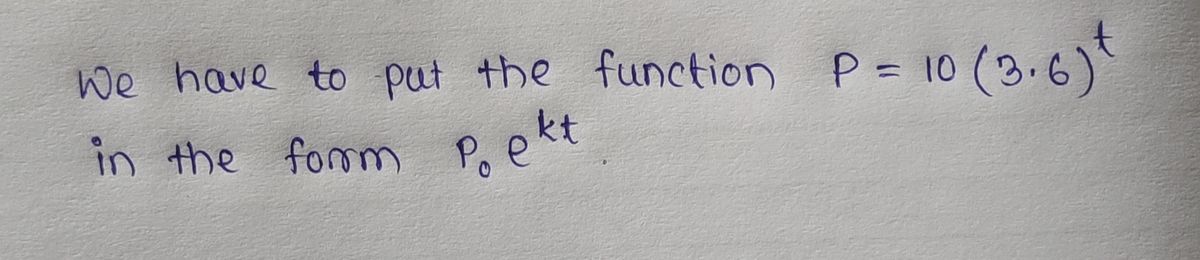 We have to put the function P = 10 (3.6)^t
in the form P₀ e^kt.